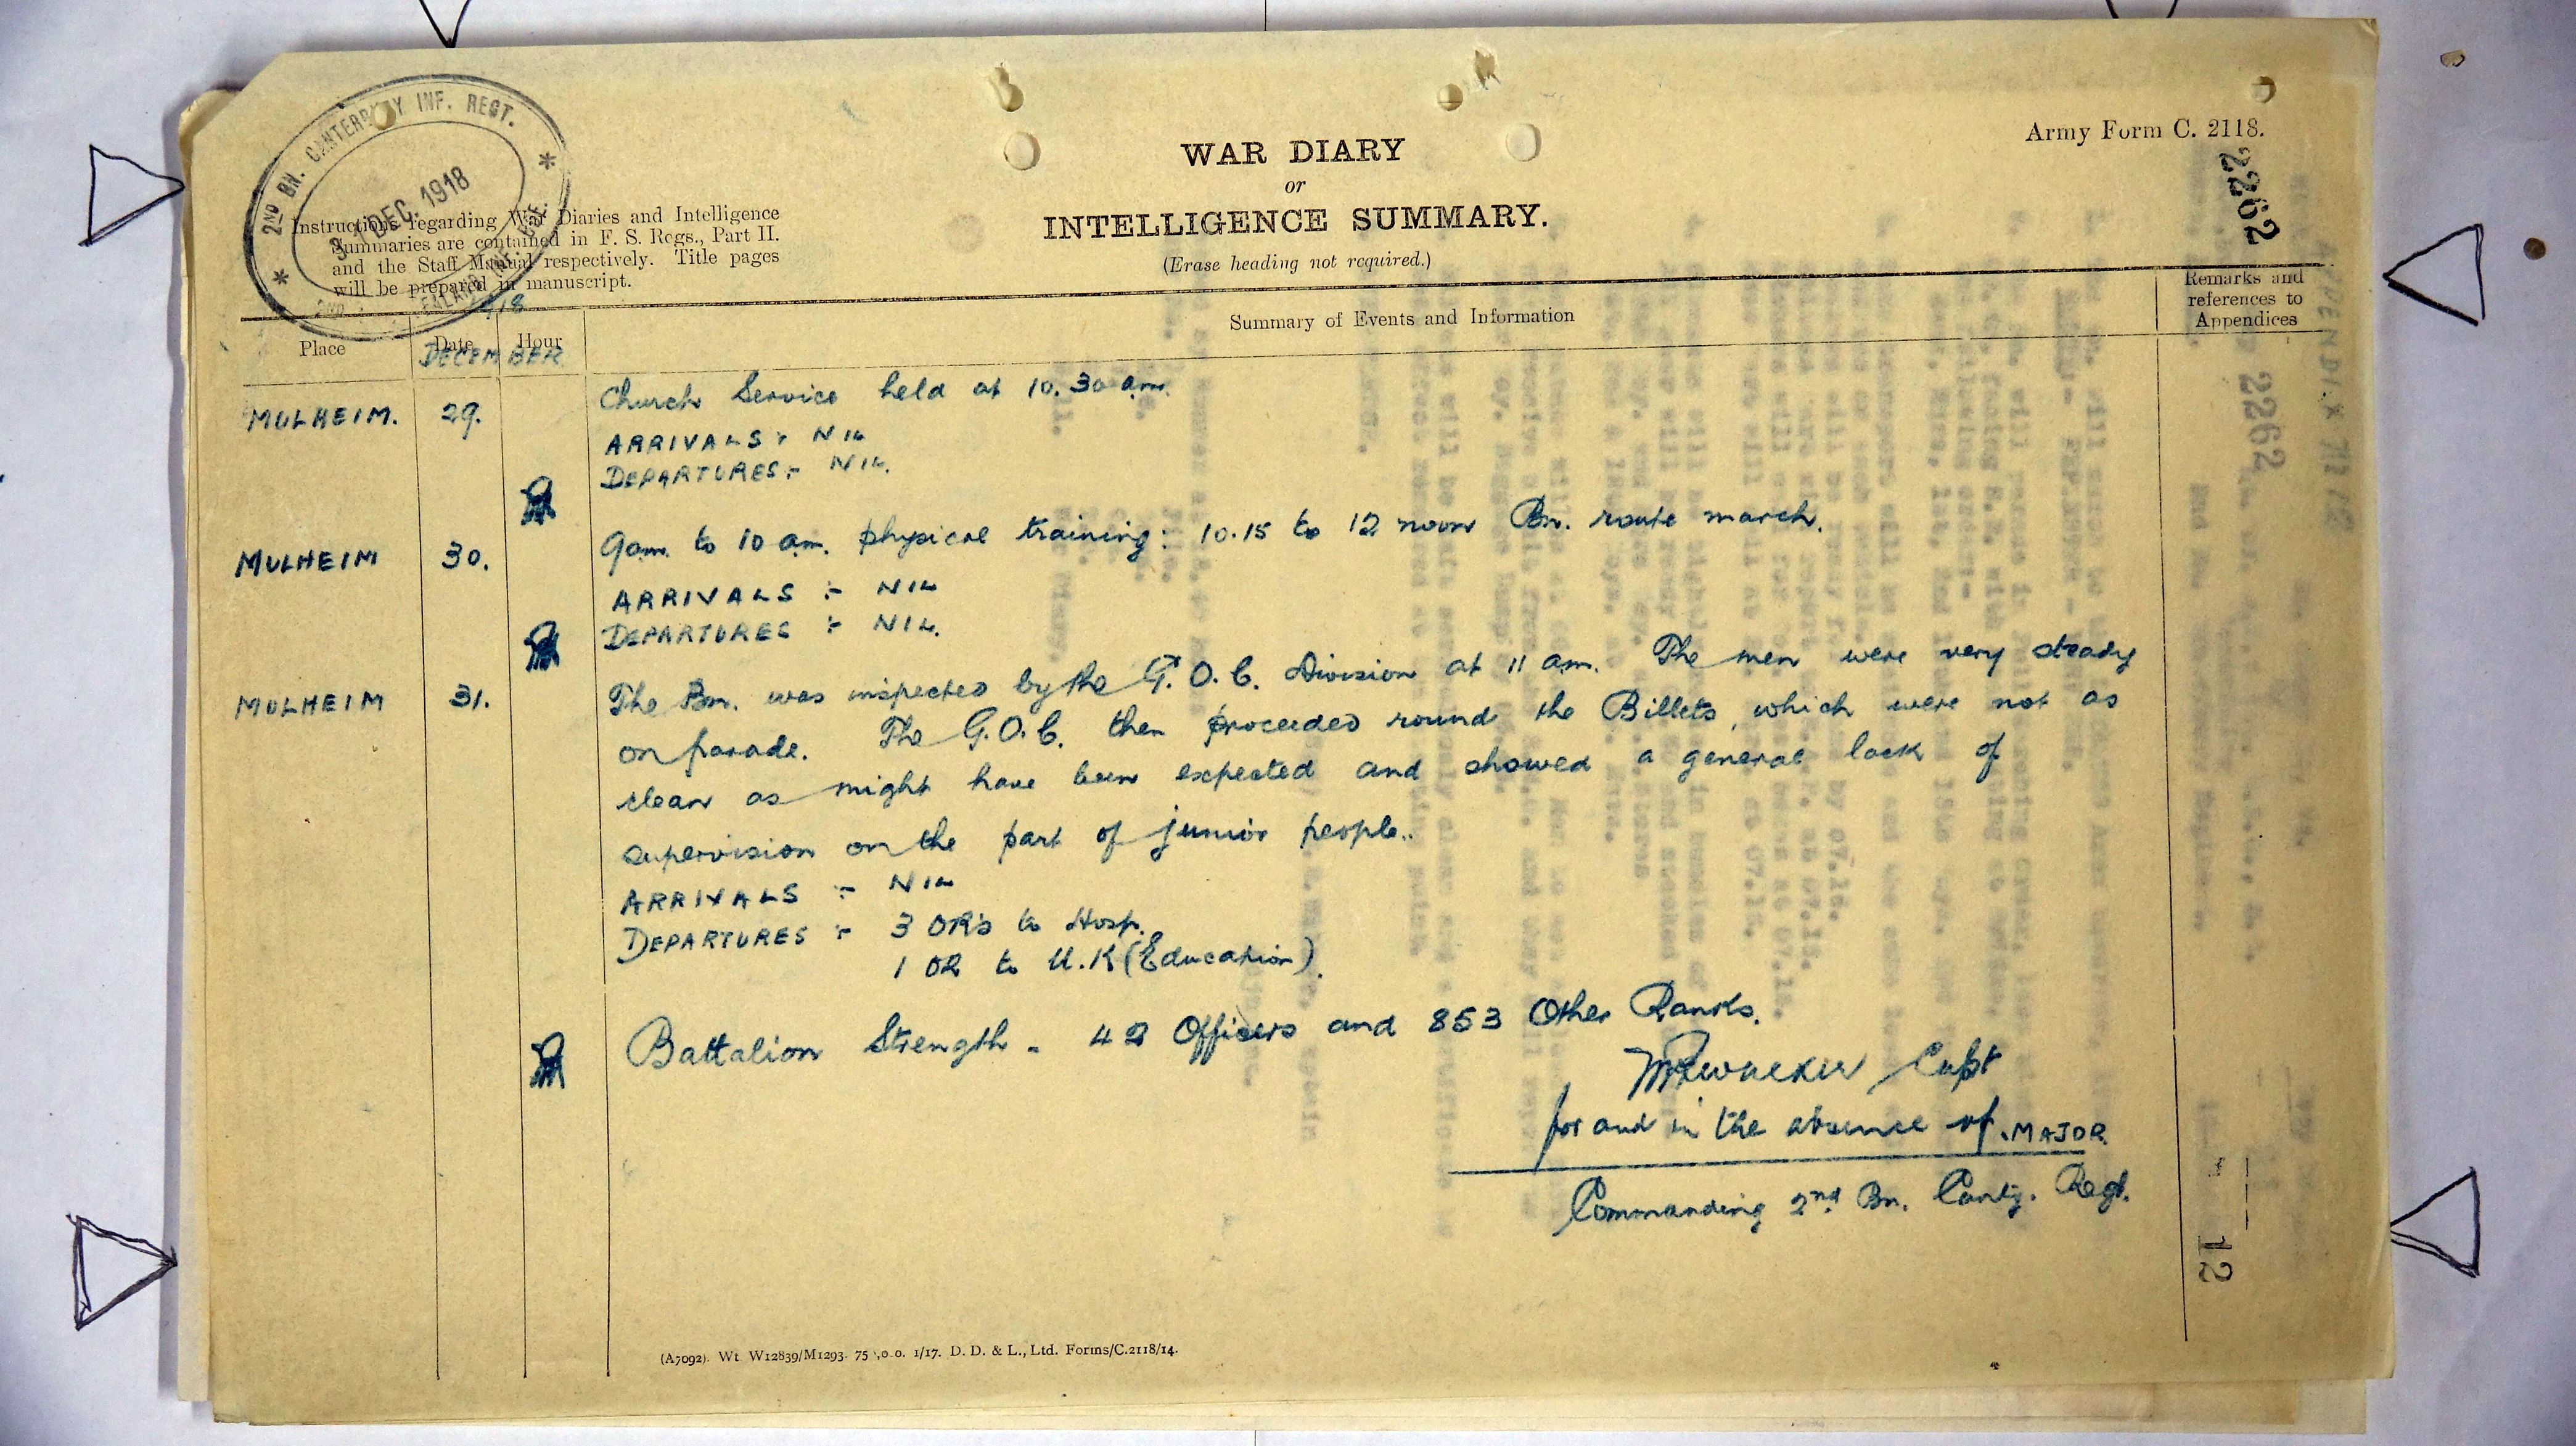 2ND BN. CANTERBURY INF. REGT.
31 DEC. 1918
Army Form C. 2118.
2262
WAR DIARY
or
INTELLIGENCE SUMMARY.
(Erase heading not required.)
Instructions regarding War Diaries and Intelligence
Summaries are contained in F. S. Regs., Part II.
and the Staff Manual respectively. Title pages
will be prepared in manuscript.
Place
Date
Hour
Summary of Events and Information
Remarks and
references to
Appendices
DECEMBER
MULHEIM. 29. Church Service held at 10.30 am.
ARRIVALS :- NIL
DEPARTURES :- NIL.
MULHEIM 30. 9am. to 10 am. physical training: 10.15 to 12 noon Bn. route march.
ARRIVALS :- NIL
DEPARTURES :- NIL.
MULHEIM 31. The Bn. was inspected by the G.O.C. Division at 11 am. The men were very steady
on parade. The G.O.C. then proceeded round the Billets, which were not as
clean as might have been expected and showed a general lack of
supervision on the part of junior people..
ARRIVALS :- NIL
DEPARTURES :- 3 ORs to Hosp.
1 OR to U.K (Education).
Battalion Strength - 42 Officers and 853 Other Ranks.
Capt
for and in the absence of. MAJOR.
Commanding 2nd Bn. Canty. Regt.
12
(A7092). Wt W12839/M1293. 75 ,0.0. 1/17. D. D. & L., Ltd. Forms/C.2118/14.